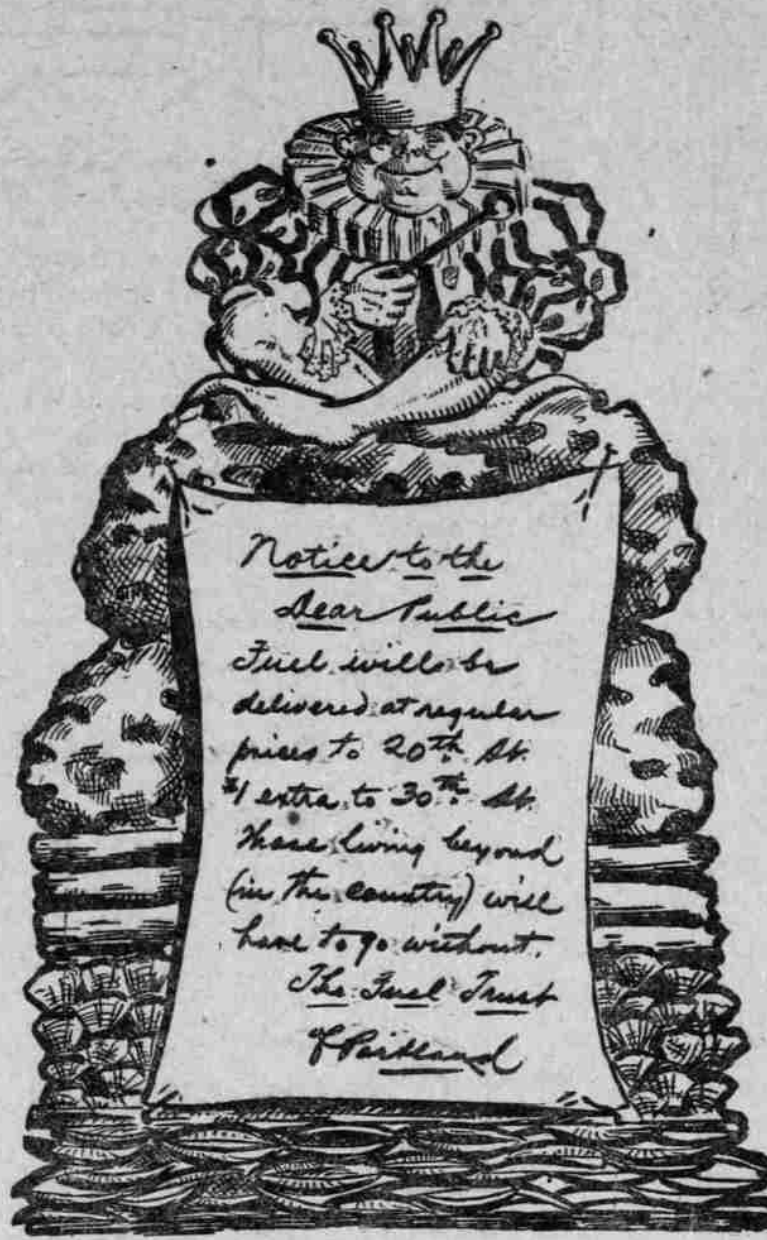 Notice to the
Dear Public
Fuel will be
delivered at regular
prices to 20th St.
$1 extra to 30th St.
Those living beyond
(in the country) will
have to go without.
The Fuel Trust
of Portland